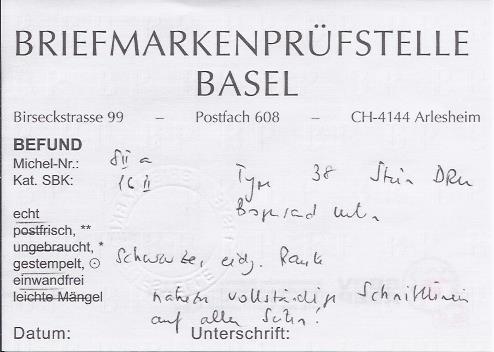 BRIEFMARKENPRÜFSTELLE
BASEL
Birseckstrasse 99 – Postfach 608 – CH-4144 Arlesheim
BEFUND
Michel-Nr.: 8II a Type 38 Stein DRU
Kat. SBK: 16 II
echt
postfrisch, **
ungebraucht, *
gestempelt, ⊙ Schwarze, eidg. Raute
einwandfrei
leichte Mängel nahezu vollständige Schnittlinien
auf allen Seiten!
Datum: Unterschrift: